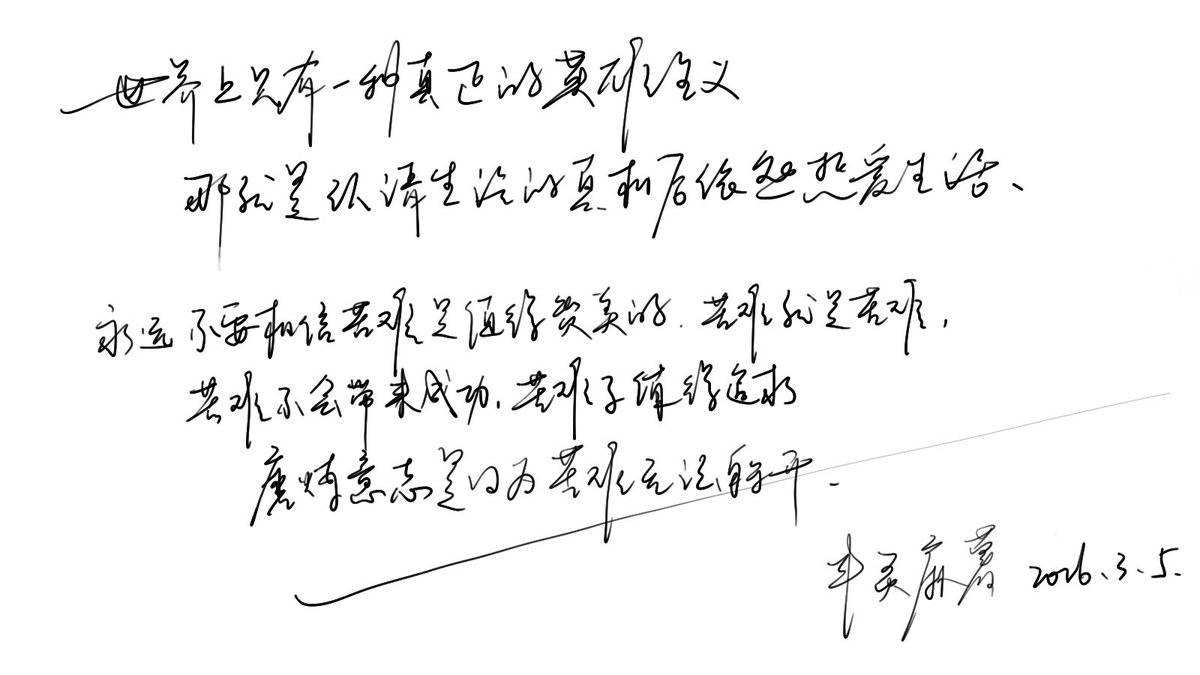 世界上只有一种真正的英雄主义
那就是认清生活的真相后依然热爱生活、
永远不要相信苦难是值得赞美的. 苦难就是苦难,
苦难不会带来成功. 苦难不值得追求
磨炼意志是因为苦难无法躲开.
麻薯 2026.3.5.